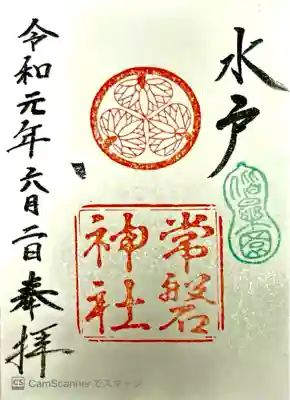 水戸
偕楽園
常磐
神社
令和元年六月二日奉拝
CS CamScannerでスキャン